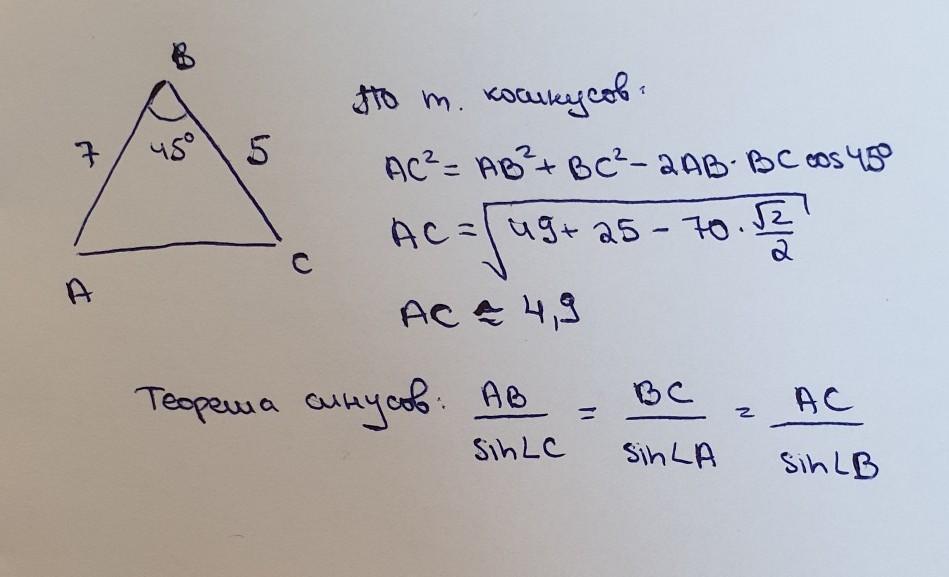 B
7
45°
5
A
C
По т. косинусов:
AC² = AB² + BC² - 2AB · BC cos 45°
AC = √(49 + 25 - 70 · √2/2)
AC ≈ 4,9
Теорема синусов: AB/sin∠C = BC/sin∠A = AC/sin∠B